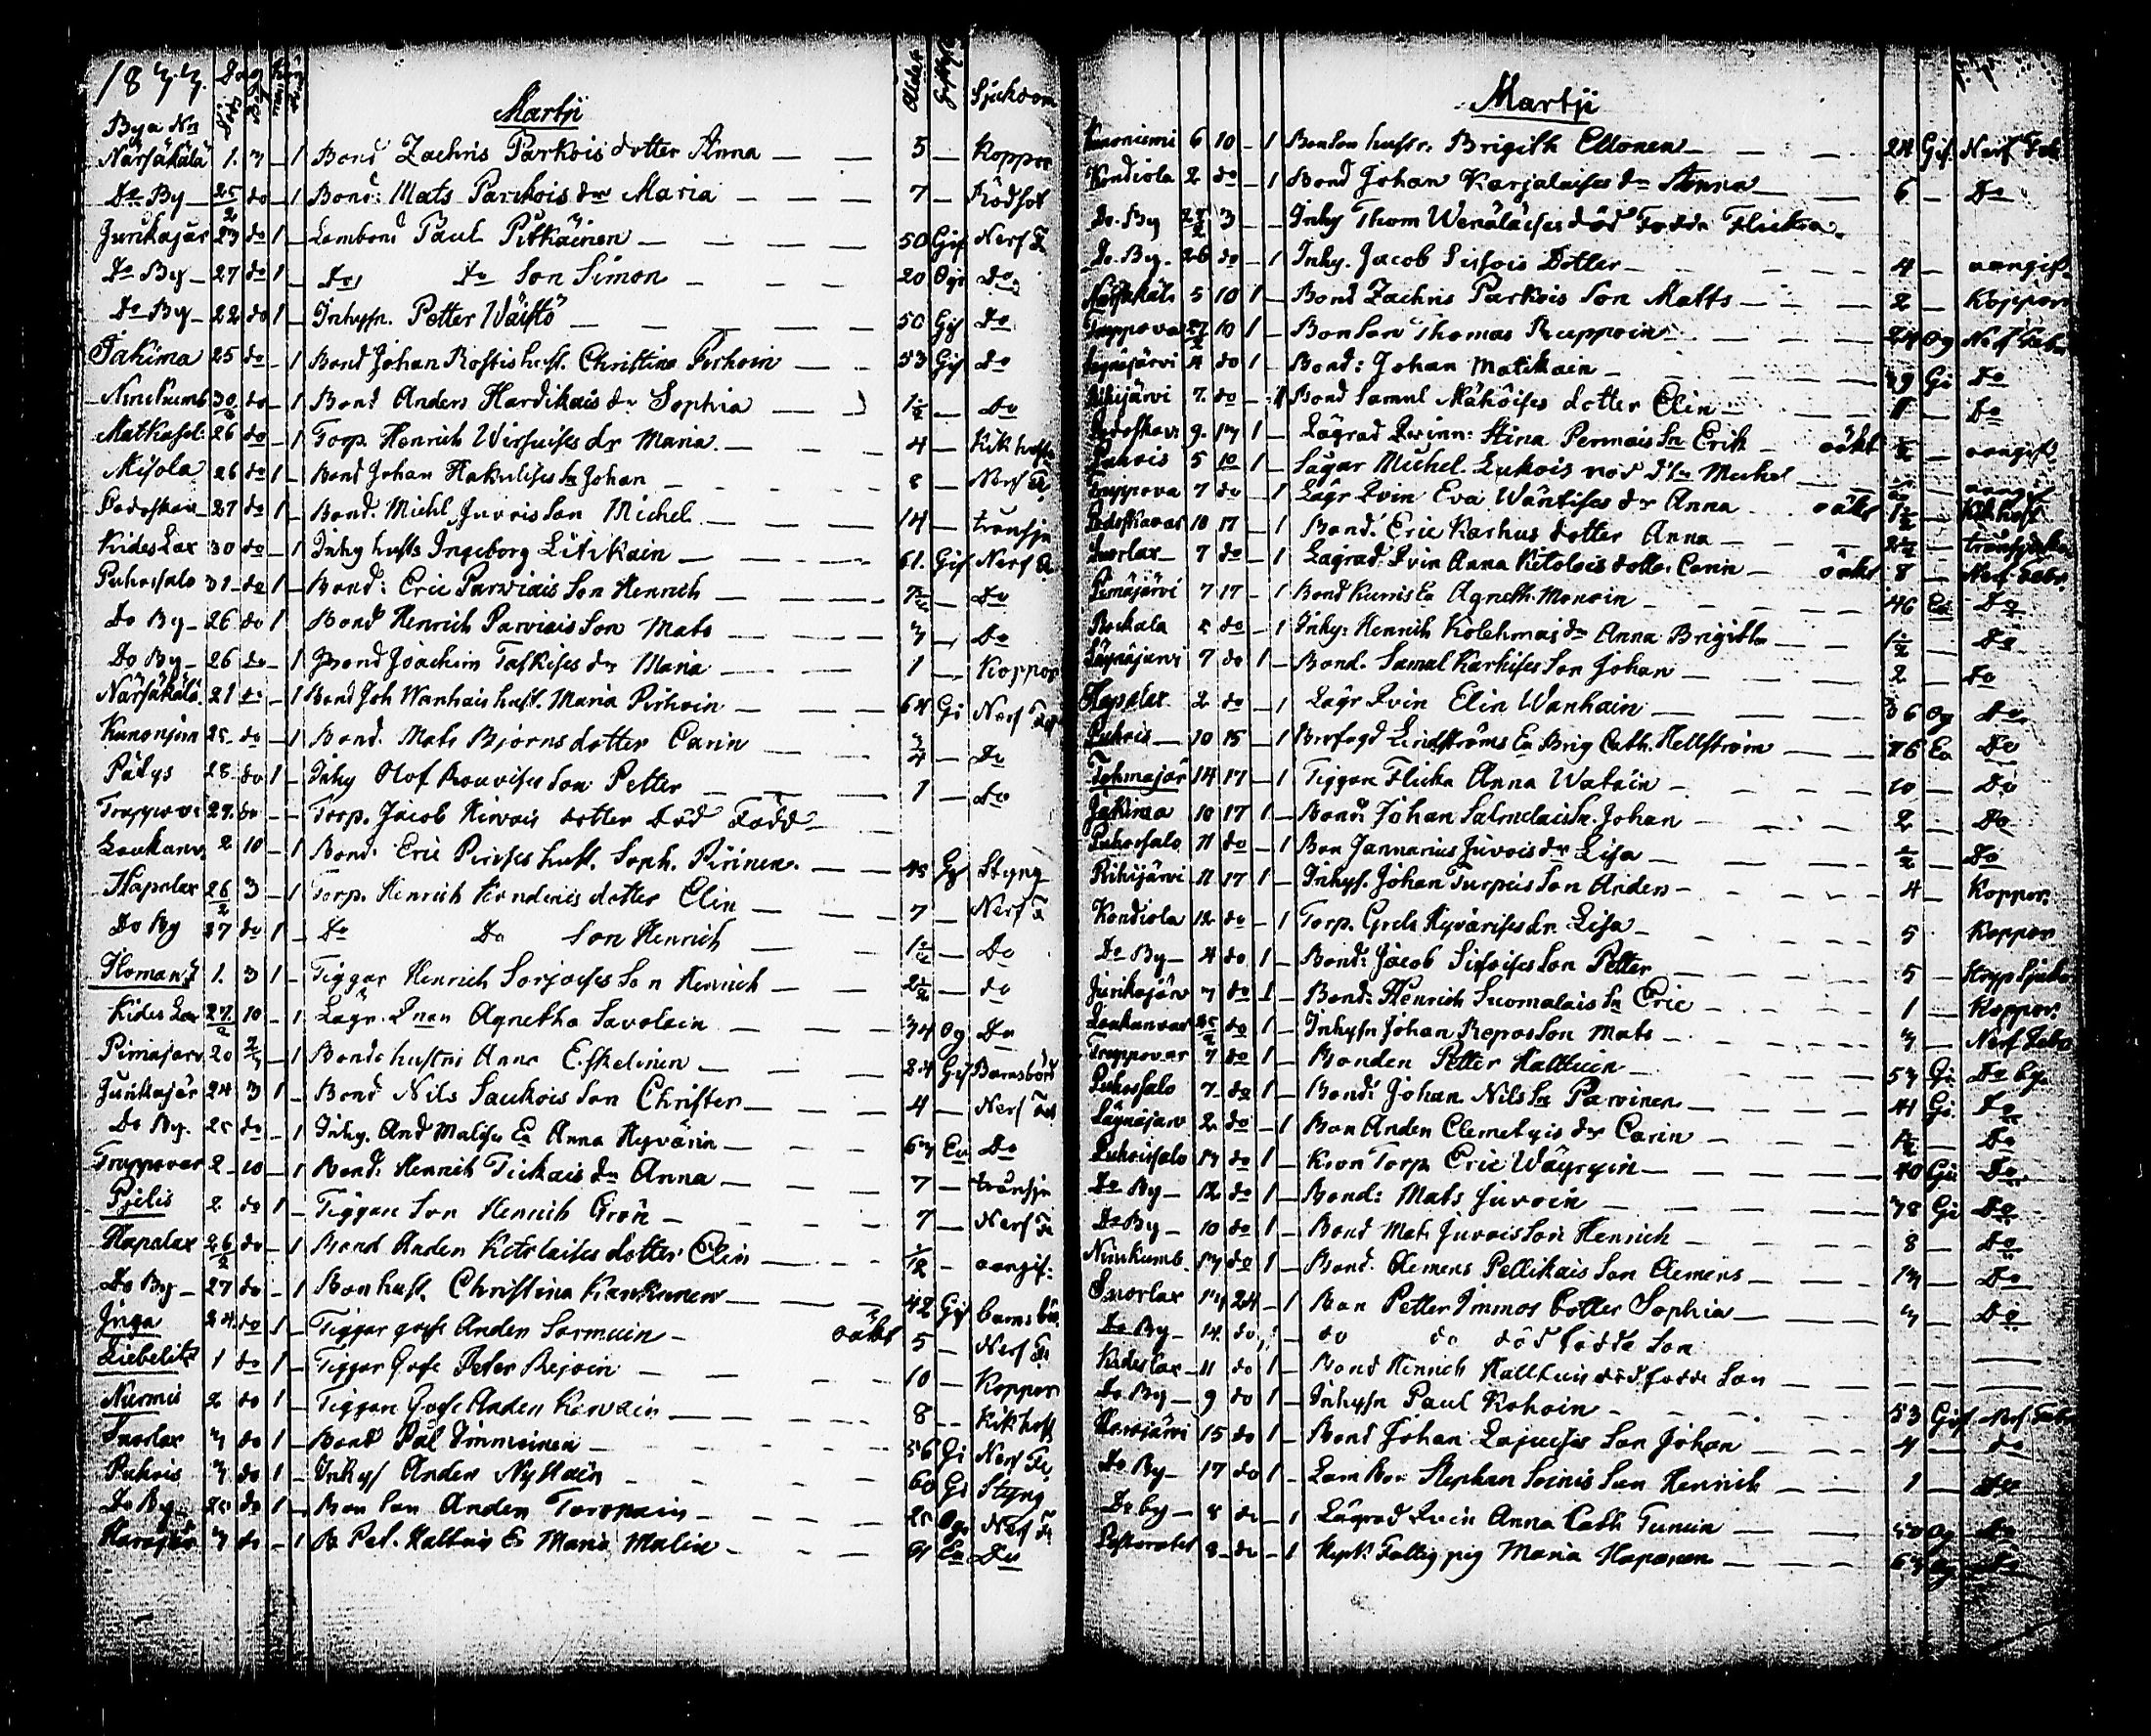 Martji
Bya Nn Död Sjukdom
Närsäkälä 1. 3 – 1 Bond Zachris Parkois dotter Anna — 5 – Koppor
Do By 25/2 do – 1 Bond: Mats Parikois dr Maria — 7 – Rödsot
Jurikajär 23 do 1 – Lambond Paul Pitkäinen — 50 Gif Nerf F
Do By 27 do 1 – Do Do Son Simon — 20 Ogi Do
Do By 22 do 1 – Inhysn. Petter Wäistö — 50 Gif Do
Jakima 25 do – 1 Bond Johan Rostis hust. Christina Pirhoin — 53 Gif Do
30/2 do – 1 Bond Anders Hardikais dr Sophia — 1/2 – Do
Matkasel: 26 do – 1 Torp. Henrich Wirsuises dr Maria — 4 – Kikhosta
Misola 26 do 1 – Bond Johan Hakulises Sn Johan — 8 – Nerf
Podoskav 27 do 1 – Bond. Michl Juvois Son Michel — 14 – trånsju
Kides Lax 30 do – 1 Inhy hust. Ingeborg Litikain — 61. Gif Nerf
Puhossalo 31 do 1 – Bond: Eric Parviais Son Henrich — – Do
Do By 26 do 1 Bond Henrich Parviais Son Mats — 3 – Do
Do By 26 do – 1 Bond Joachim Taskises dr Maria — 1 – Koppor
Närsäkälä 21 do – 1 Bond Joh Wanhais hust. Maria Pirhoin — 64 Gi Nerf
Kunonjem 25 do – 1 Bond. Mats Björns dotter Carin — 3/4 – Do
Pätys 28 do 1 – Inhy Olof Rouvises Son Petter — 1 – Do
27. do – – Torp. Jacob Hirvois dotter död Född
Loukunv 2 10 – 1 Bond. Eric Pirises hust. Soph. Pirinen. — 48 Gif Styng
Hapalax 26/2 3 – 1 Torp. Henrich dotter Elin — 7 – Nerf F
Do By 27 do 1 – Do Do Son Henrich — – Do
Homants 1. 3 1 – Tiggar Henrich Sorjoises Son Henrich — 2 1/2 – do
Kides Lax 27/2 10 – 1 Lägr. Qnan Agnetha Savolain — 34 Og Do
Pimajarv 20 – 1 Bonde hustru Anna Eskelinen — 24 Gif Barnsbörd
Jurikajär 24 3 1 – Bond Nils Saukois Son Christer — 4 – Nerf
Do By. 25 do – 1 Inhy. And Malises Ea Anna Hyvärin — 67 Ea Do
Truppovar 2 10 – 1 Bond: Henrich Tiikais dr Anna — 7 – trånsju
Pjelis 2 do 1 – Tiggar Son Henrich Grön — 7 – Nerf F
Hapalax 26/2 do – 1 Bond Anders Kitolaises dotter Elin — 1/12 – oangif:
Do By 27 do – 1 Bonhust. Christina Kankunen — 42 Gif barnsbör
Inga 24 do 1 – Tiggar gosse Anders Sormuin – oäkt 5 – Nerf F
Liebelitz 1 do 1 – Tiggar Gosse Peter Rejoin — 10 – Koppor
Nurmis 2 do 1 – Tiggar Gosse Anders Kervain — 8 – Kikhost
Snorlax 7 do 1 – Bond Pål Immoinen — 56 Gi Nerf Fe
Puhois 7 do 1 – Inhys Anders Nystäin — 60 Gi Styng
Do By 25 do 1 – Bon Son Anders Toropain — 25 Ogi Nerf Fe
Harajär 7 do – 1 B Pet. Haltuis Ea Maria Malin — Ea Do
Martji
Kunoniemi 6 10 – 1 Bonson hustr. Brigith Ellonen — 24 Gif. Nerf Feb
Kondiola 2 do – 1 Bond Johan Karjalaises dr Anna — 6 – Do
Do By 27/2 3 – Inhy Thom Wenäläises död Födde Flicka.
Do By. 26 do – 1 Inhy. Jacob Sisois Dotter — 4 – oangif.
Närsäkälä 5 10 1 – Bond Zachris Parkois Son Matts — 2 – Koppor
Truppova 27/2 10 1 – BonSon Thomas Ruppoin — 24 Og Nerf Feb
4 do 1 – Bond: Johan Matikain — 39 Gi Do
Rihijärvi 7. do – 1 Bond Samul Mähöises dotter Elin — 1 – Do
Podoskav 9. 17 1 – Lägrad Qvinn: Stina Permais Sn Erik – oäkt 1/2 – oangif.
Puhois 5 10 1 – Sågar Michel Lukois Michel — oangif
Truppova 7 do – 1 Lägr Qvin Eva Wäntises dr Anna – oäkt 1 1/2 – Kikhost
Podoskavar 10 17 – 1 Bond. Eric Karhus dotter Anna — 2 1/2 – trånsjuka
Snorlax 7 do – 1 Lägrad Qvin Anna Kitolois dotter Carin – oäkt 8 – Nerf Febr.
Pimäjärvi 7 17 – 1 Bond Kurris Ea Agneth. Monoin — 46 Ea Do
Rockala 5 do – 1 Inhy: Henrich Kolehmais dr Anna Brigitha — 1/2 – Do
Lägnäjarvi 7 do 1 – Bond. Samul Karhises Son Johan — 2 – do
Hapalax 2 do – 1 Lägr Qvin Elin Wanhain — 36 Og Do
Puhois 10 15 – 1 Brofogd Lindströms Ea Brig Cath. Hellström — 76 Ea Do
Tohmajär 14 17 – 1 Tiggar Flicka Anna Watain — 10 – Do
Jakima 10 17 1 – Bond Johan Salmelais Sn. Johan — 2 – Do
Puhossalo 11 do – 1 Bon Jannarius Juvois dr Lisa — 1/2 – Do
Rihijärvi 11 17 1 – Inhys. Johan Turpeis Son Anders — 4 Koppor.
Kondiola 12 do – 1 Torp. Grels Hyvärises dr. Lisa — 5 Koppor
Do By 4 do 1 – Bond: Jacob Sisoises Son Petter — 5 – Stryp Sjuka
Jurikajärv 7 do 1 – Bond. Henrich Suomalais Sn Eric — 1 – Koppor
Loukunvar 25/2 do 1 – Inhysn Johan Repos Son Mats — 3 – Nerf Febr
Truppovar 7 do 1 – Bonden Petter Haltuin — 57 Gi
Puhossalo 7 do 1 – Bond: Johan Nils Sn Parvinen — 41 Gi Do
Lägnäjarv 2 do – 1 Bon Anders Clemetyis dr Carin — – Do
Puhoissalo 17 do 1 – Kron Torp. Eric Wäyryin — 40 Gi Do
Do By 12 do 1 – Bond: Mats Juvoin — 78 Gi Do
Do By 10 do 1 – Bond Mats Juvois Son Henrich — 8 – Do
17 do 1 – Bond. Clemens Pellikais Son Clemens — – Do
Snorlax 17 24 – 1 Bon Petter Immos Dotter Sophia — 3 – Do
Do By 14 do 1 – do do död födde Son
Kides Lax 11 do 1 – Bond Henrich Haltuis död födde Son
Do By 9 do 1 – Inhysn Paul Kohoin — 53 Gif Nerf Febr
15 do 1 – Bond Johan Lajuises Son Johan — 4 – do
Do By 17 do 1 – Lam Bon Stephan Soinis Son Henrich — 1 – Do
Do by 8 do – 1 Lägrad Qvin Anna Cath Tunuin — 50 Og Do
8 do – 1 Fattig pig Maria Haponen — 67 Og Do